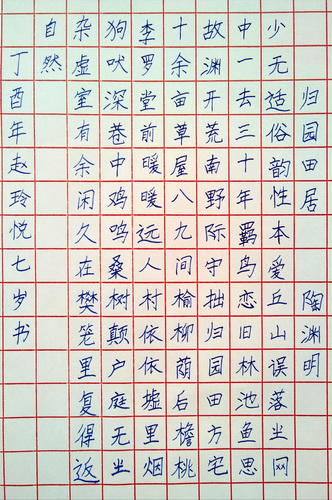 归园田居 陶渊明
少无适俗韵性本爱丘山误落尘网
中一去三十年羁鸟恋旧林池鱼思
故渊开荒南野际守拙归园田方宅
十余亩草屋八九间榆柳荫后檐桃
李罗堂前暖暖远人村依依墟里烟
狗吠深巷中鸡鸣桑树颠户庭无尘
杂虚室有余闲久在樊笼里复得返
自然
丁酉年赵玲悦七岁书